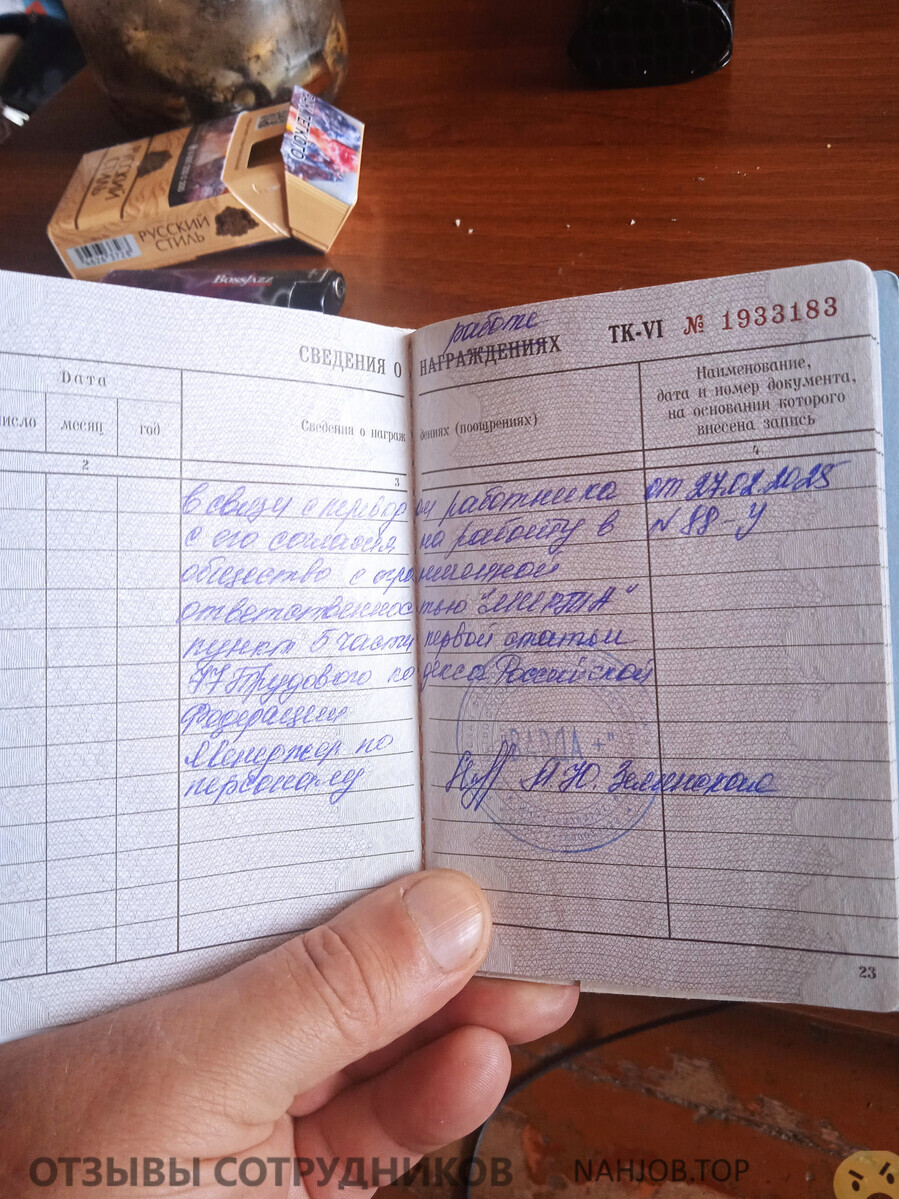 РУССКИЙ
СТИЛЬ
РУССКИЙ
СТИЛЬ
BossJazz
работе
СВЕДЕНИЯ О НАГРАЖДЕНИЯХ ТК-VI № 1933183
Дата
число месяц год
Сведения о награждениях (поощрениях)
Наименование,
дата и номер документа,
на основании которого
внесена запись
2 3 4
в связи с переводом работника от 27.02.2025
с его согласия на работу в N 88-У
общество с ограниченной
ответственностью
пункт 5 части первой статьи
77 Трудового кодекса Российской
Федерации
Менеджер по
персоналу М.Ю.
23
ОТЗЫВЫ СОТРУДНИКОВ NAHJOB.TOP